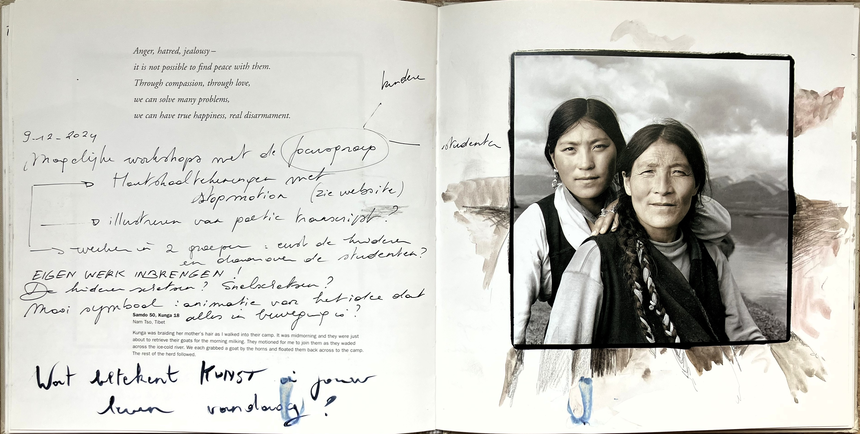 Anger, hatred, jealousy –
it is not possible to find peace with them.
Through compassion, through love,
we can solve many problems,
we can have true happiness, real disarmament.
kinderen
9-12-2024
Mogelijke workshops met de focusgroep
studenten
Houtskooltekeningen met
stopmotion (zie website)
illustreren van poetic transcript?
werken in 2 groepen : eerst de kinderen
en daarna de studenten?
EIGEN WERK INBRENGEN!
De kinderen schetsen? Snelschetsen?
Mooi symbool : animatie van het idee dat
alles in beweging is?
Samdo 50, Kunga 18
Nam Tso, Tibet
Kunga was braiding her mother's hair as I walked into their camp. It was midmorning and they were just
about to retrieve their goats for the morning milking. They motioned for me to join them as they waded
across the ice-cold river. We each grabbed a goat by the horns and floated them back across to the camp.
The rest of the herd followed.
Wat betekent KUNST in jouw
leven vandaag?